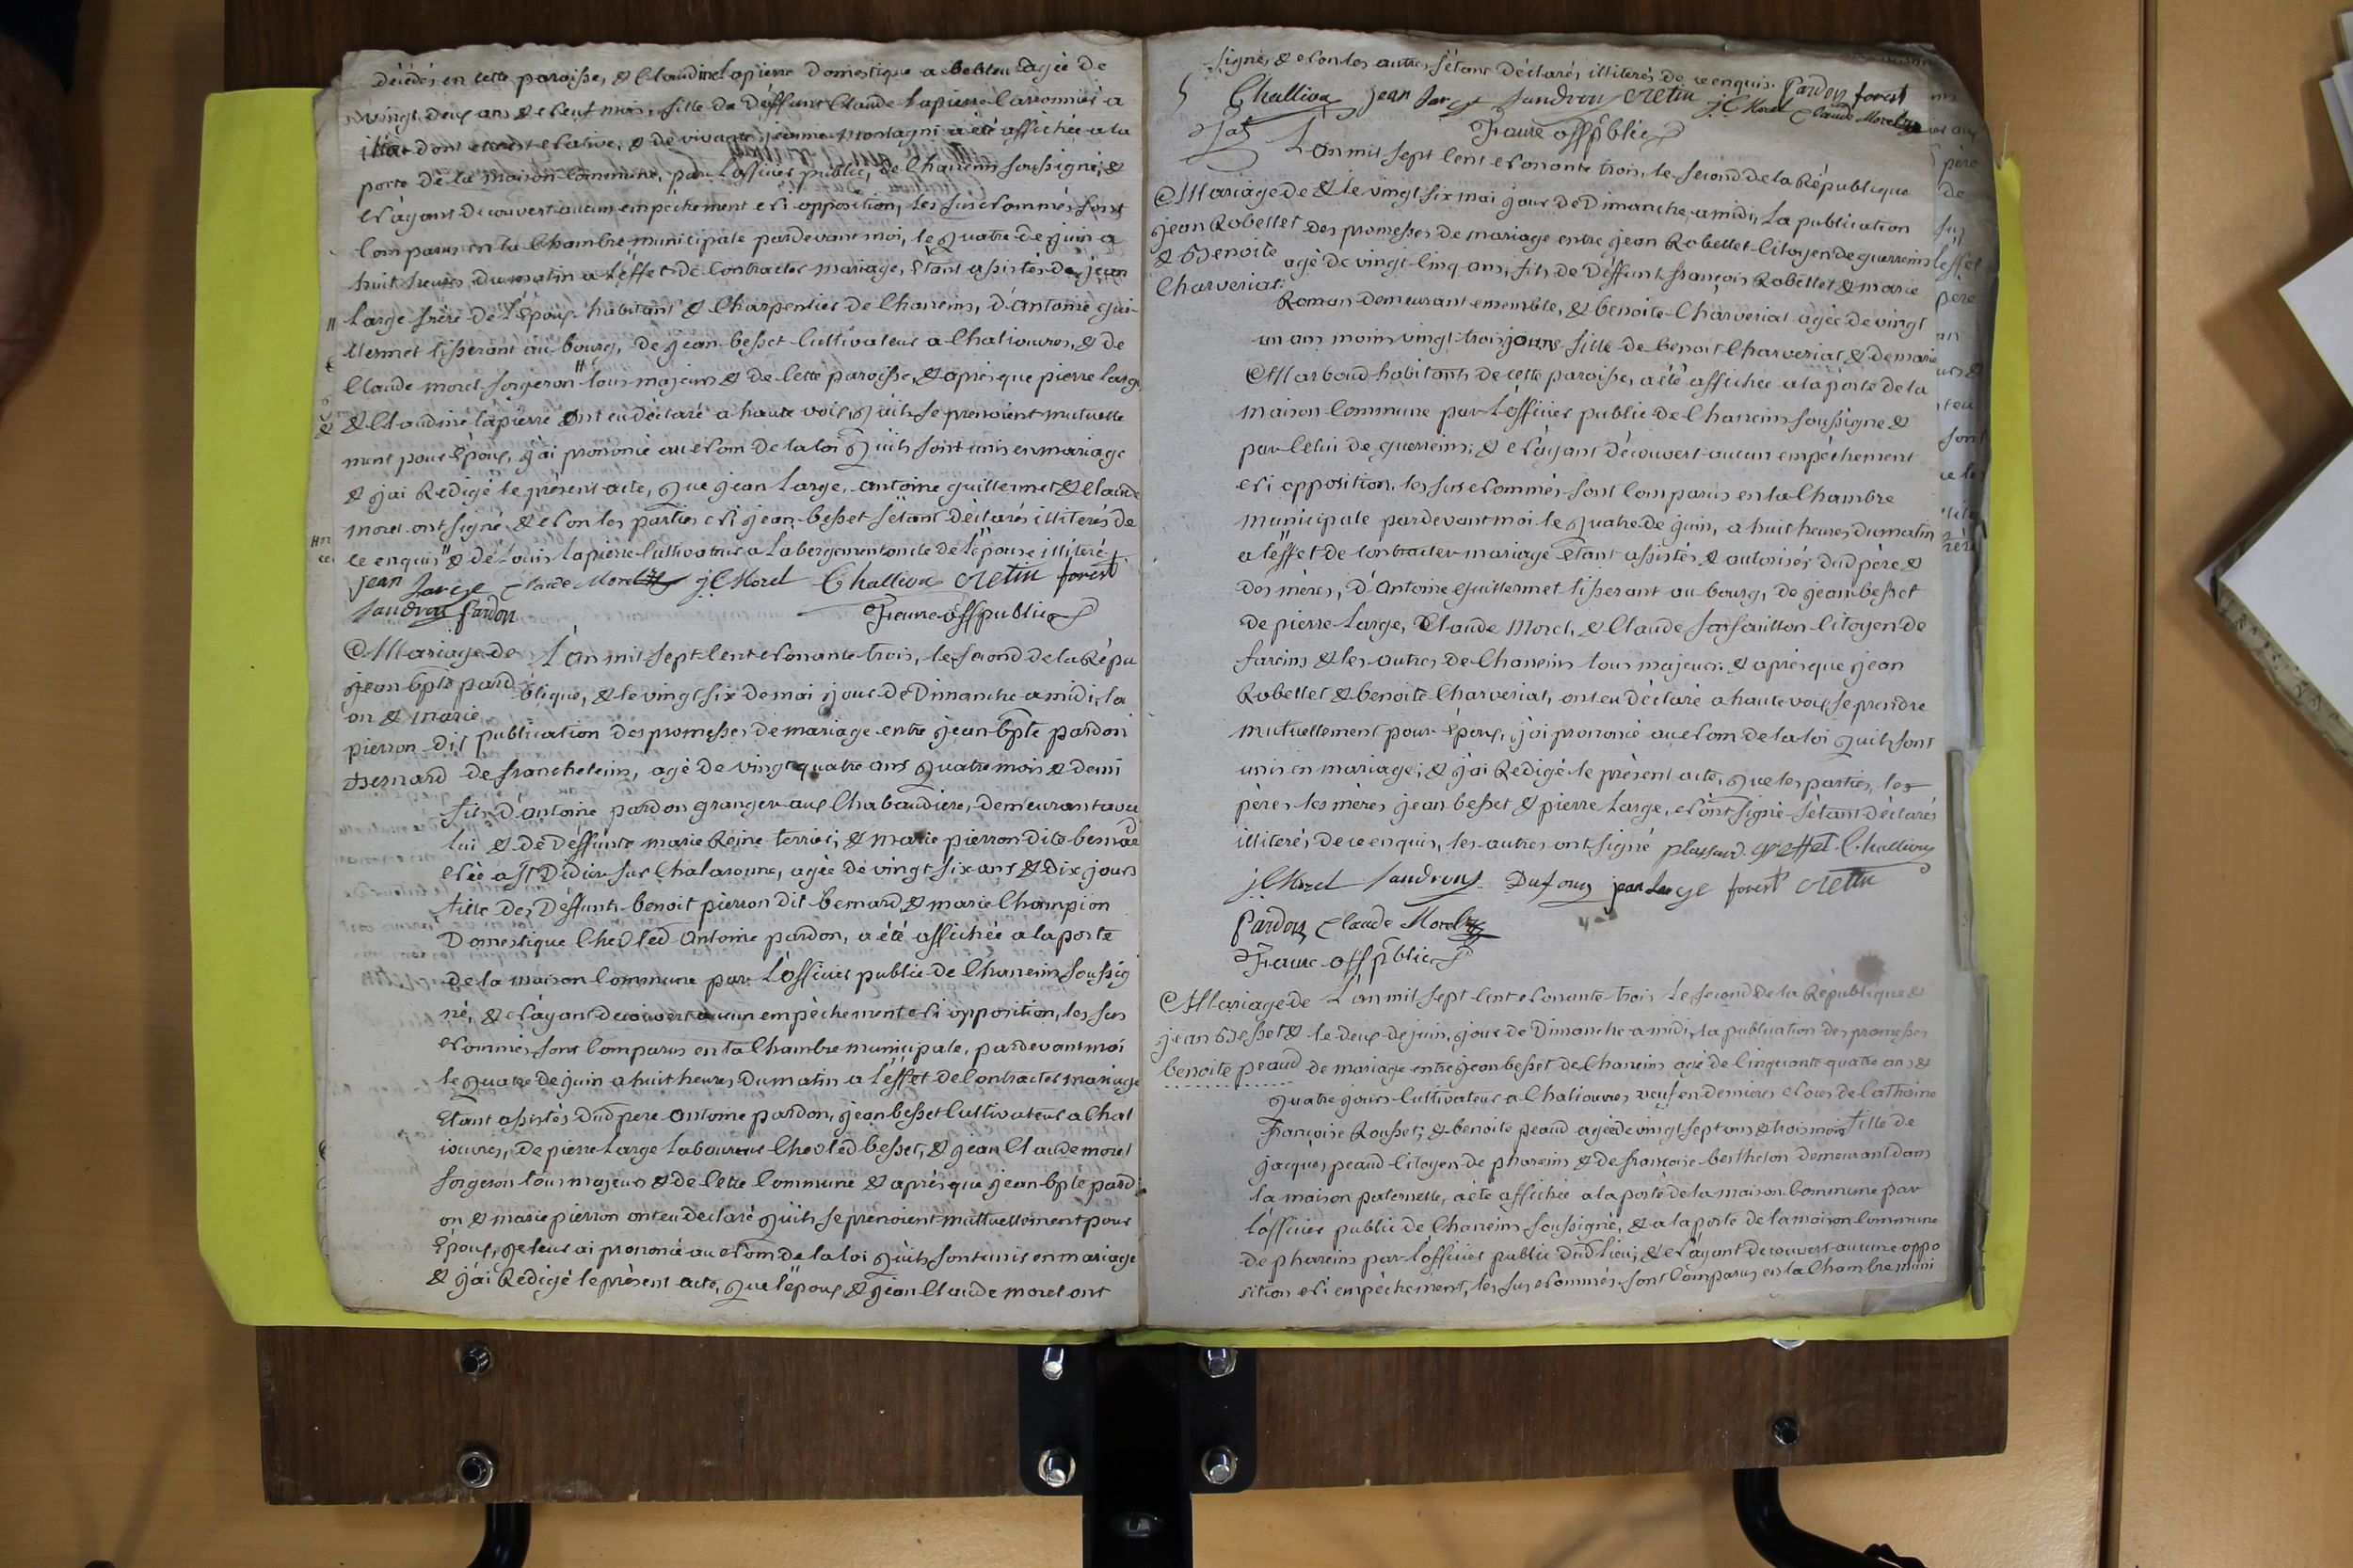 décédés en cette paroisse, & Claudine Lapierre domestique a agée de
vingt deux ans & neuf mois, fille de déffunt Claude Lapierre a
dont native, & de vivante jeanne montagni a été affichée a la
porte de la maison commune, par L'officier public, de Chaneins soussigné, &
n'ayant découvert aucun empêchement ni opposition, Les susnommés sont
comparus en la Chambre municipale pardevant moi, le quatre de juin a
huit heures du matin a L'éffet de contracter mariage, Etant assistés de jean
Large frère de L'époux habitant & Charpentier de Chaneins, d'antoine guil-
lermet tisserant au bourg, de jean besset cultivateur a Chaliouvres, & de
Claude morel forgeron tous majeurs & de cette paroisse, & après que pierre large
& Claudine lapierre ont eu déclaré a haute voix, qu'ils se prenoient mutuelle
ment pour Epoux, j'ai prononcé au nom de la loi qu'ils sont unis en mariage
& j'ai Redigé le présent acte, que jean Large, antoine guillermet & Claude
morel ont signé & non les parties ni jean besset s'étant déclarés illiterés de
ce enquis & de Louis Lapierre cultivateur a Labergement oncle de L'épouse illiteré
jean Large Claude Morel j.C. Morel Challiou Cretin forest
Jandrou Pardon Faure off public
Mariage de
jean bpte pard
on & marie
pierron dit
Bernard
L'an mil sept cent nonante trois, le second de la Répu
blique, & le vingt six de mai jour de Dimanche a midi, la
publication des promesses de mariage entre jean bpte pardon
de francheleins, agé de vingt quatre ans quatre mois & demi
fils d'Antoine pardon granger aux Chabaudiere, demeurant avec
lui & de déffunte marie Reine terrier; & marie pierron dite bernard
née a St Didier sur Chalaronne, agée de vingt six ans & dix jours
fille des Déffunts benoit pierron dit bernard & marie Champion
Domestique Chez led Antoine pardon, a été affichée a la porte
de la maison commune par L'officier public de Chaneins soussig
né, & n'ayant decouvert aucun empêchement ni opposition, les sus
nommés sont comparus en la Chambre municipale, pardevant moi
le quatre de juin a huit heures du matin a l'éffet de contracter mariage
Etant assistés dud pere antoine pardon, jean besset cultivateur a Chal
iouvres, de pierre Large Laboureur Chez led besset, & jean Claude morel
forgeron tous majeurs & de cette commune & après que jean bpte pard
on & marie pierron ont eu déclaré qu'ils se prenoient mutuellement pour
Epoux, je leur ai prononcé au nom de la loi qu'ils sont unis en mariage
& j'ai Redigé le présent acte, que l'époux & jean Claude morel ont
signé, & non les autres s'étant déclarés illiterés de ce enquis. Pardon forest
Challiou jean Large Jandrou Cretin j.C. Morel Claude Morel
Faure off pblic
Mariage de
jean Robellet
& Benoite
Charveriat.
L'an mil sept cent nonante trois, le second de la République
& le vingt six mai jour de Dimanche, a midi, La publication
des promesses de mariage entre jean Robellet Citoyen de guerreins
agé de vingt cinq ans, fils de Déffunt françois Robellet & marie
Roman demeurant ensemble, & benoite Charveriat agée de vingt
un ans moins vingt trois jours fille de benoit Charveriat & de marie
Marboud habitants de cette paroisse, a été affichée a la porte de la
maison commune par L'officier public de Chaneins soussigné &
par celui de guerreins; & n'ayant découvert aucun empéchement
ni opposition, les susnommés sont comparus en la Chambre
municipale pardevant moi le quatre de juin, a huit heures du matin
a l'éffet de contracter mariage Etant assistés & autorisés dud père &
des mères, d'Antoine guillermet tisserant au bourg, de jean besset
de pierre Large, Claude Morel, & Claude Citoyen de
fareins & les autres de Chaneins tous majeurs. & après que jean
Robellet & benoite Charveriat, ont eu déclaré a haute voix se prendre
mutuellement pour Epoux, j'ai prononcé au nom de la loi qu'ils sont
unis en mariage; & j'ai Redigé le présent acte, que les parties, les
pères les mères jean besset & pierre Large, n'ont signé s'étant déclarés
illiterés de ce enquis, les autres ont signé Challiou
j.C. Morel Jandrou Dufour jean Large forest Cretin
Pardon Claude Morel
Faure off pblic
Mariage de
jean Besset &
benoite peaud
L'an mil sept cent nonante trois Le second de la République &
le deux de juin, jour de Dimanche a midi, la publication des promesses
de mariage entre jean besset de Chaneins agé de cinquante quatre ans &
quatre jours cultivateur a Chaliouvres veuf en dernieres noces de Catherine
françoise Rousset; & benoite peaud agée de vingt sept ans & trois mois fille de
jacques peaud Citoyen de phareins & de françoise berthelon demeurant dans
la maison paternelle, a été affichée a la porte de la maison commune par
l'officier public de Chaneins soussigné, & a la porte de la maison commune
de phareins par l'officier public dud Lieu; & n'ayant decouvert aucune oppo
sition ni empêchement, les susnommés sont comparus en la Chambre muni